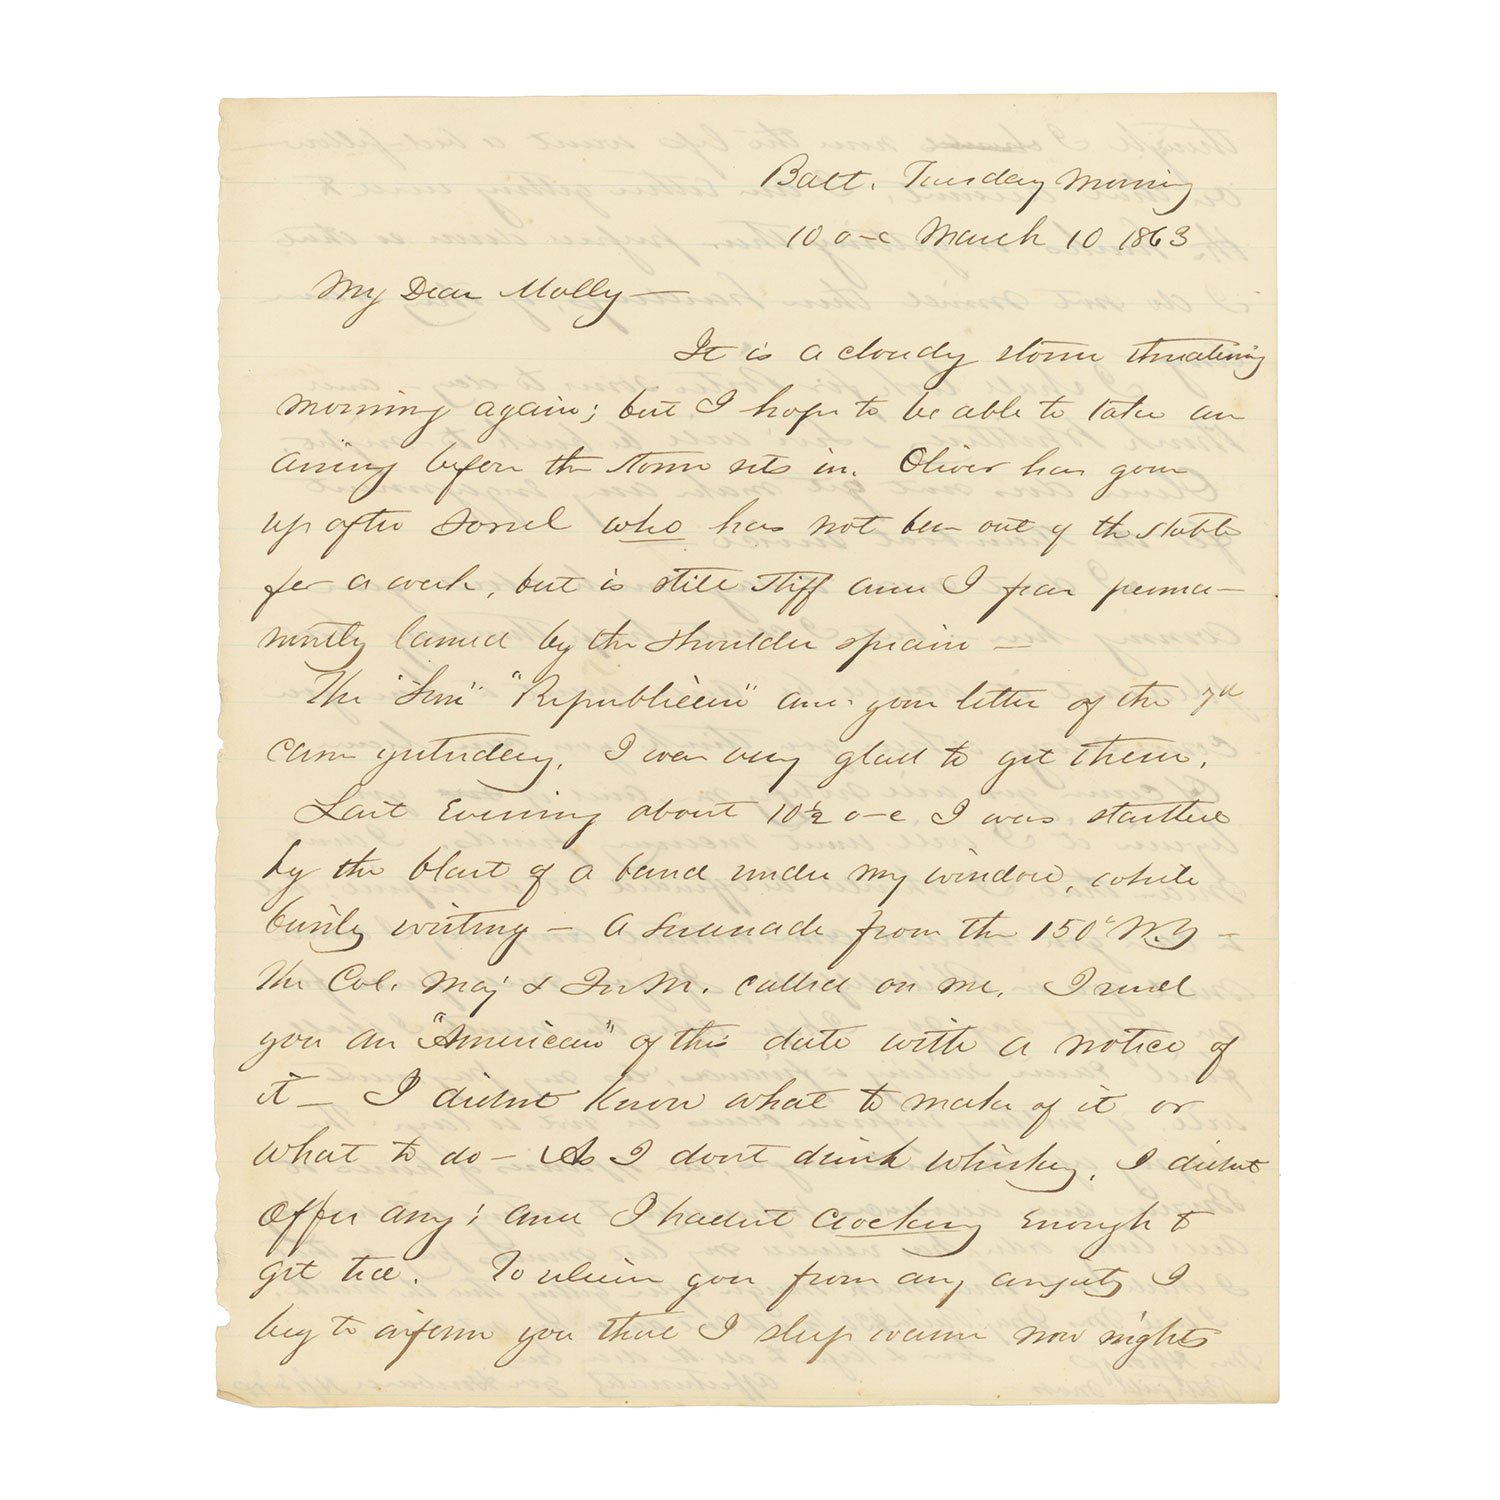 Balt. Tuesday Morning
10 o-c March 10 1863
My Dear Molly —
It is a cloudy storm threatening
morning again; but I hope to be able to take an
airing before the storm sets in. Oliver has gone
up after Sorrel who has not been out of the stable
for a week, but is still stiff and I fear perma-
nently lamed by the shoulder sprain —
The "Sun" "Republican" and your letter of the 7th
came yesterday. I was very glad to get them.
Last Evening about 10½ o-c I was startled
by the blast of a band under my window, while
busily writing — a Serenade from the 150th N.Y —
The Col. Maj & Qr M. called on me. I send
you an "American" of this date with a notice of
it — I didnt know what to make of it or
what to do — As I dont drink whiskey, I didnt
offer any; and I hadnt crockery enough to
get tea. To relieve you from any anxiety I
beg to inform you that I sleep warm now nights